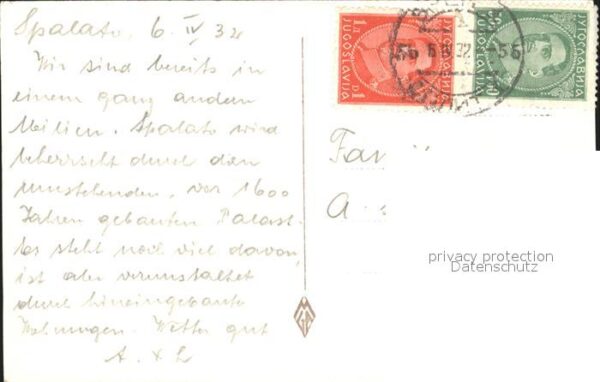 Spalato, 6. IV 32
Wir sind bereits in
einem ganz andern
Milieu. Spalato wird
beherrscht durch den
umstehenden, vor 1600
Jahren gebauten Palast.
Es steht noch viel davon,
ist aber verunstaltet
durch hineingebaute
Wohnungen. Wetter gut
A. + L
1 Д
ЈУГОСЛАВИЈА
JUGOSLAVIJA
1 D
ЈУГОСЛАВИЈА
Fam
A
privacy protection
Datenschutz